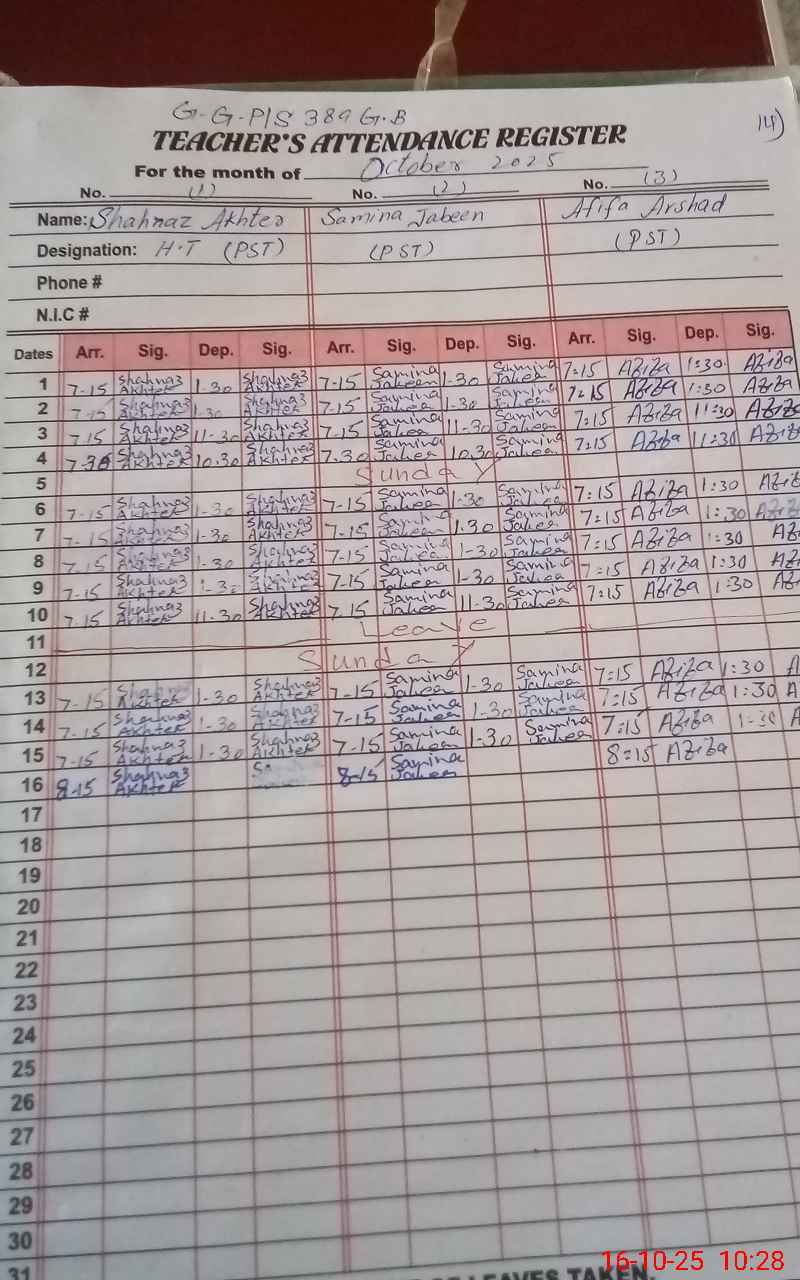 G-G-P/S 389 G.B
14)
TEACHER'S ATTENDANCE REGISTER
For the month of October 2025
No. (1) No. (2) No. (3)
Name: Shahnaz Akhter Samina Jabeen Afifa Arshad
Designation: H.T (PST) (PST) (PST)
Phone #
N.I.C #
Dates Arr. Sig. Dep. Sig. Arr. Sig. Dep. Sig. Arr. Sig. Dep. Sig.
1 7-15 Shahnaz Akhter 1-30 Shahnaz Akhter 7-15 Samina Jabeen 1-30 Samina Jabeen 7:15 1:30
2 7-15 Shahnaz Akhter 1-30 Shahnaz Akhter 7-15 Samina Jabeen 1-30 Samina Jabeen 7:15 1:30
3 7-15 Shahnaz Akhter 11-30 Shahnaz Akhter 7-15 Samina Jabeen 11-30 Samina Jabeen 7:15 11:30
4 7-30 Shahnaz Akhter 10.30 Shahnaz Akhter 7.30 Samina Jabeen 10.30 Samina Jabeen 7:15 11:30
5 Sunday
6 7-15 Shahnaz Akhter 1-30 Shahnaz Akhter 7-15 Samina Jabeen 1-30 Samina Jabeen 7:15 1:30
7 7-15 Shahnaz Akhter 1-30 Shahnaz Akhter 7-15 Samina Jabeen 1.30 Samina Jabeen 7:15 1:30
8 7-15 Shahnaz Akhter 1-30 Shahnaz Akhter 7-15 Samina Jabeen 1-30 Samina Jabeen 7:15 1:30
9 7-15 Shahnaz Akhter Shahnaz Akhter 7-15 Samina Jabeen 1-30 Samina Jabeen 7:15 1:30
10 7-15 Shahnaz Akhter 11-30 Shahnaz Akhter 7-15 Samina Jabeen 11-30 Samina Jabeen 7:15 1:30
11 Leave
12 Sunday
13 7-15 Akhter 1-30 Shahnaz Akhter 7-15 Samina Jabeen 1-30 Samina Jabeen 7:15 1:30
14 7-15 Shahnaz Akhter 1-30 Shahnaz Akhter 7-15 Samina Jabeen 1-30 Samina Jabeen 7:15 1:30
15 7-15 Shahnaz Akhter 1-30 Shahnaz Akhter 7-15 Samina Jabeen 1-30 Samina Jabeen 7:15 1-30
16 8-15 Shahnaz Akhter 8-15 Samina Jabeen 8:15
17
18
19
20
21
22
23
24
25
26
27
28
29
30
31
LEAVES TAKEN
16-10-25 10:28